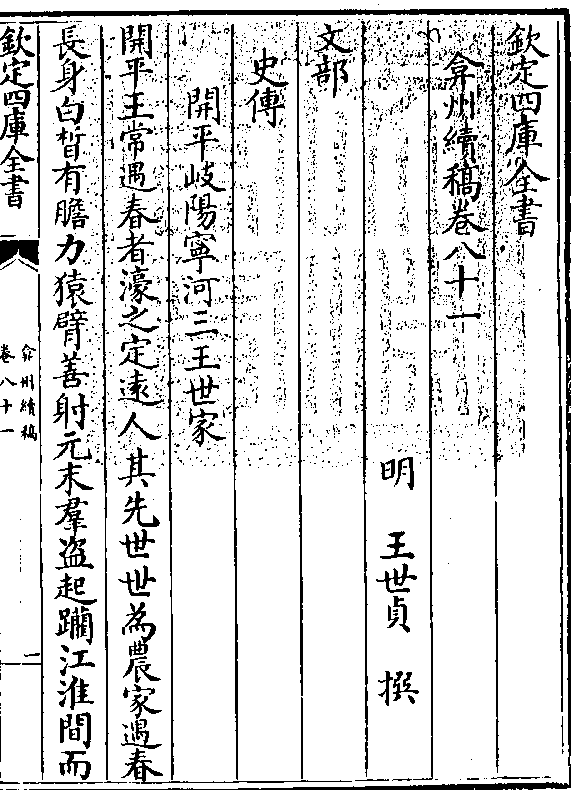 欽定四庫全書
弇州續稿巻八十一
明 王世貞 撰
文部
史傳
開平岐陽寧河三王世家
開平王常遇春者濠之定遠人其先世世為農家遇春
長身白皙有膽力猿臂善射元末羣盗起躪江淮間而
欽定四庫全書
弇州續稿
巻八十一
一